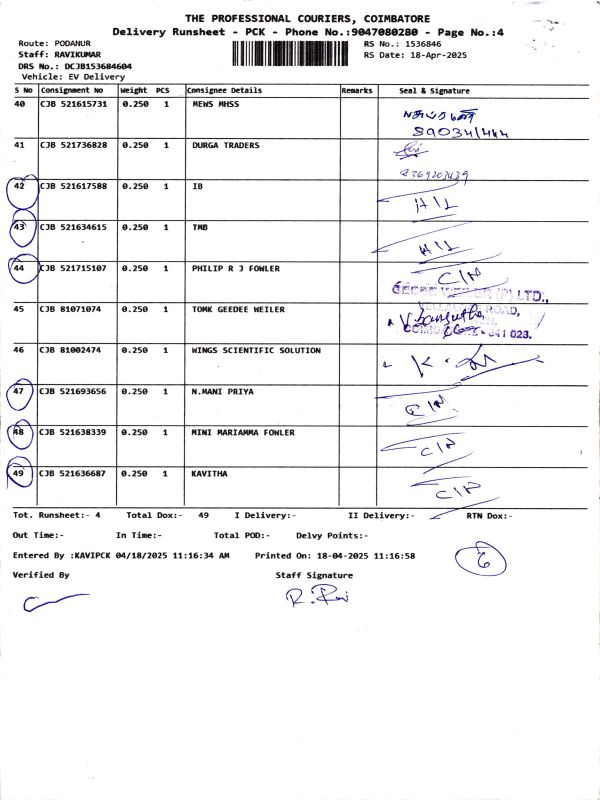 THE PROFESSIONAL COURIERS, COIMBATORE
Delivery Runsheet - PCK - Phone No.:9047080280 - Page No.:4
Route: PODANUR
Staff: RAVIKUMAR
DRS No.: DCJB153684604
Vehicle: EV Delivery
RS No.: 1536846
RS Date: 18-Apr-2025
S No Consignment No Weight PCS Consignee Details Remarks Seal & Signature
40 CJB 521615731 0.250 1 MEWS MHSS
41 CJB 521736828 0.250 1 DURGA TRADERS
42 CJB 521617588 0.250 1 IB H/L
43 CJB 521634615 0.250 1 TMB H/L
44 CJB 521715107 0.250 1 PHILIP R J FOWLER C/N
45 CJB 81071074 0.250 1 TOMK GEEDEE WEILER
46 CJB 81002474 0.250 1 WINGS SCIENTIFIC SOLUTION
47 CJB 521693656 0.250 1 N.MANI PRIYA C/N
48 CJB 521638339 0.250 1 MINI MARIAMMA FOWLER C/N
49 CJB 521636687 0.250 1 KAVITHA C/N
Tot. Runsheet:- 4 Total Dox:- 49 I Delivery:- II Delivery:- RTN Dox:-
Out Time:- In Time:- Total POD:- Delvy Points:-
Entered By :KAVIPCK 04/18/2025 11:16:34 AM Printed On: 18-04-2025 11:16:58
6
Verified By Staff Signature
R. Ravi